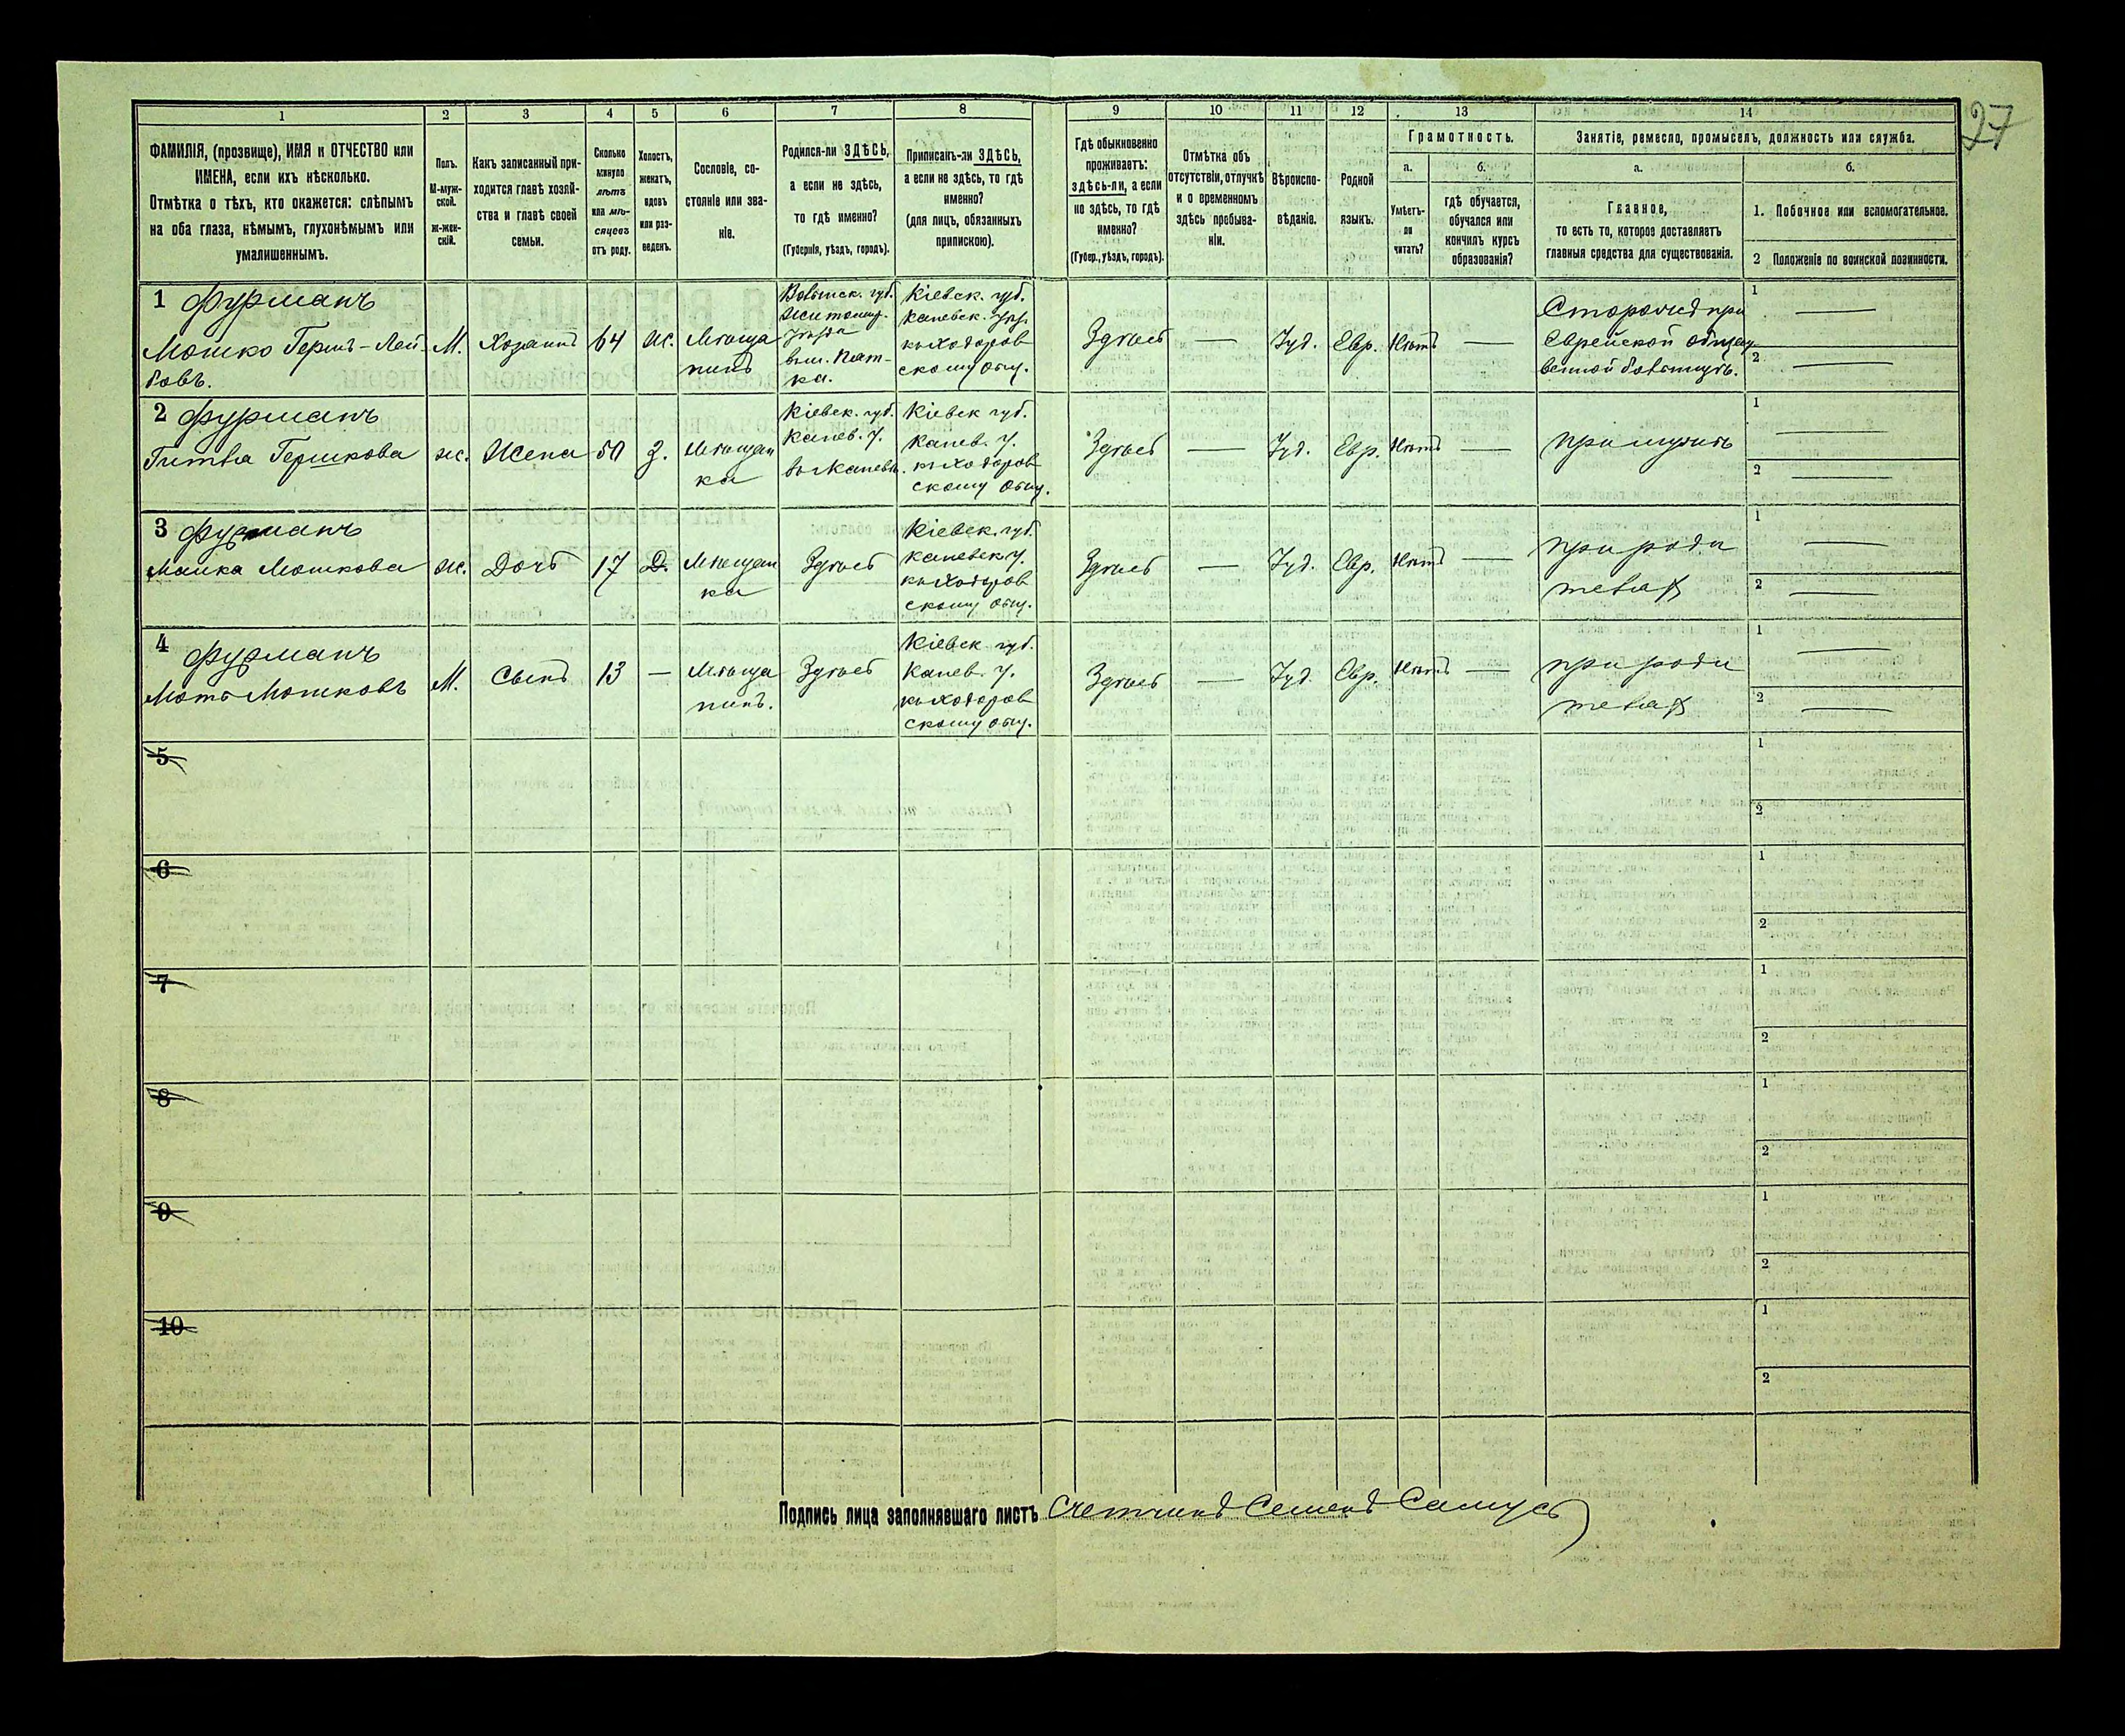 27
1 2 3 4 5 6 7 8 9 10 11 12 13 14
ФАМИЛІЯ, (прозвище), ИМЯ и ОТЧЕСТВО или
ИМЕНА, если ихъ нѣсколько.
Отмѣтка о тѣхъ, кто окажется: слѣпымъ
на оба глаза, нѣмымъ, глухонѣмымъ или
умалишеннымъ.
Полъ.
М-муж-
ской.
Ж-жен-
скій.
Какъ записанный при-
ходится главѣ хозяй-
ства и главѣ своей
семьи.
Сколько
минуло
лѣтъ
или мѣ-
сяцевъ
отъ роду.
Холостъ,
женатъ,
вдовъ
или раз-
веденъ.
Сословіе, со-
стояніе или зва-
ніе.
Родился-ли ЗДѢСЬ,
а если не здѣсь,
то гдѣ именно?
(Губернія, уѣздъ, городъ).
Приписанъ-ли ЗДѢСЬ,
а если не здѣсь, то гдѣ
именно?
(для лицъ, обязанныхъ
припискою).
Гдѣ обыкновенно
проживаетъ:
здѣсь-ли, а если
не здѣсь, то гдѣ
именно?
(Губер., уѣздъ, городъ).
Отмѣтка объ
отсутствіи, отлучкѣ
и о временномъ
здѣсь пребыва-
ніи.
Вѣроиспо-
вѣданіе.
Родной
языкъ.
Грамотность.
а.
Умѣетъ-
ли
читать?
б.
гдѣ обучается,
обучался или
кончилъ курсъ
образованія?
Занятіе, ремесло, промыселъ, должность или служба.
а.
Главное,
то есть то, которое доставляетъ
главныя средства для существованія.
б.
1. Побочное или вспомогательное.
2 Положеніе по воинской повинности.
1 Фурманъ
Мошко Гершъ-Лей-
бовъ.
М.
Хозяинъ
64
ж.
Мѣща
нинъ
Волынск. губ.
Житомир.
уѣзда
Кіевск. губ.
каневск. уѣз.
къ Ходоров
скому общ.
Здѣсь
—
Іуд.
Евр.
Нѣтъ
—
Сторожъ при
Еврейской общест
венной больницѣ.
1 —
2 —
2 Фурманъ
Гитля Гершкова
ж.
Жена
50
З.
Мѣщан
ка
Кіевск. губ.
Канев. у.
Кіевск губ.
Канев. у.
къ Ходоров
скому Общ.
Здѣсь
—
Іуд.
Евр.
Нѣтъ
—
при мужѣ
1 —
2 —
3 Фурманъ
Мошкова
ж.
Дочь
17
Д.
Мѣщан
ка
Здѣсь
Кіевск. губ.
каневск у.
къ Ходоров
скому общ.
Здѣсь
—
Іуд.
Евр.
Нѣтъ
—
при роди
теляхъ
1 —
2 —
4 Фурманъ
Мошковъ
М.
Сынъ
13
—
Мѣща
нинъ.
Здѣсь
Кіевск губ.
Канев. у.
къ Ходоров
скому общ.
Здѣсь
—
Іуд.
Евр.
Нѣтъ
—
при роди
теляхъ
1 —
2 —
5
1
2
6
1
2
7
1
2
8
1
2
9
1
2
10
1
2
Подпись лица заполнявшаго листъ Счетчикъ Семенъ Самусь